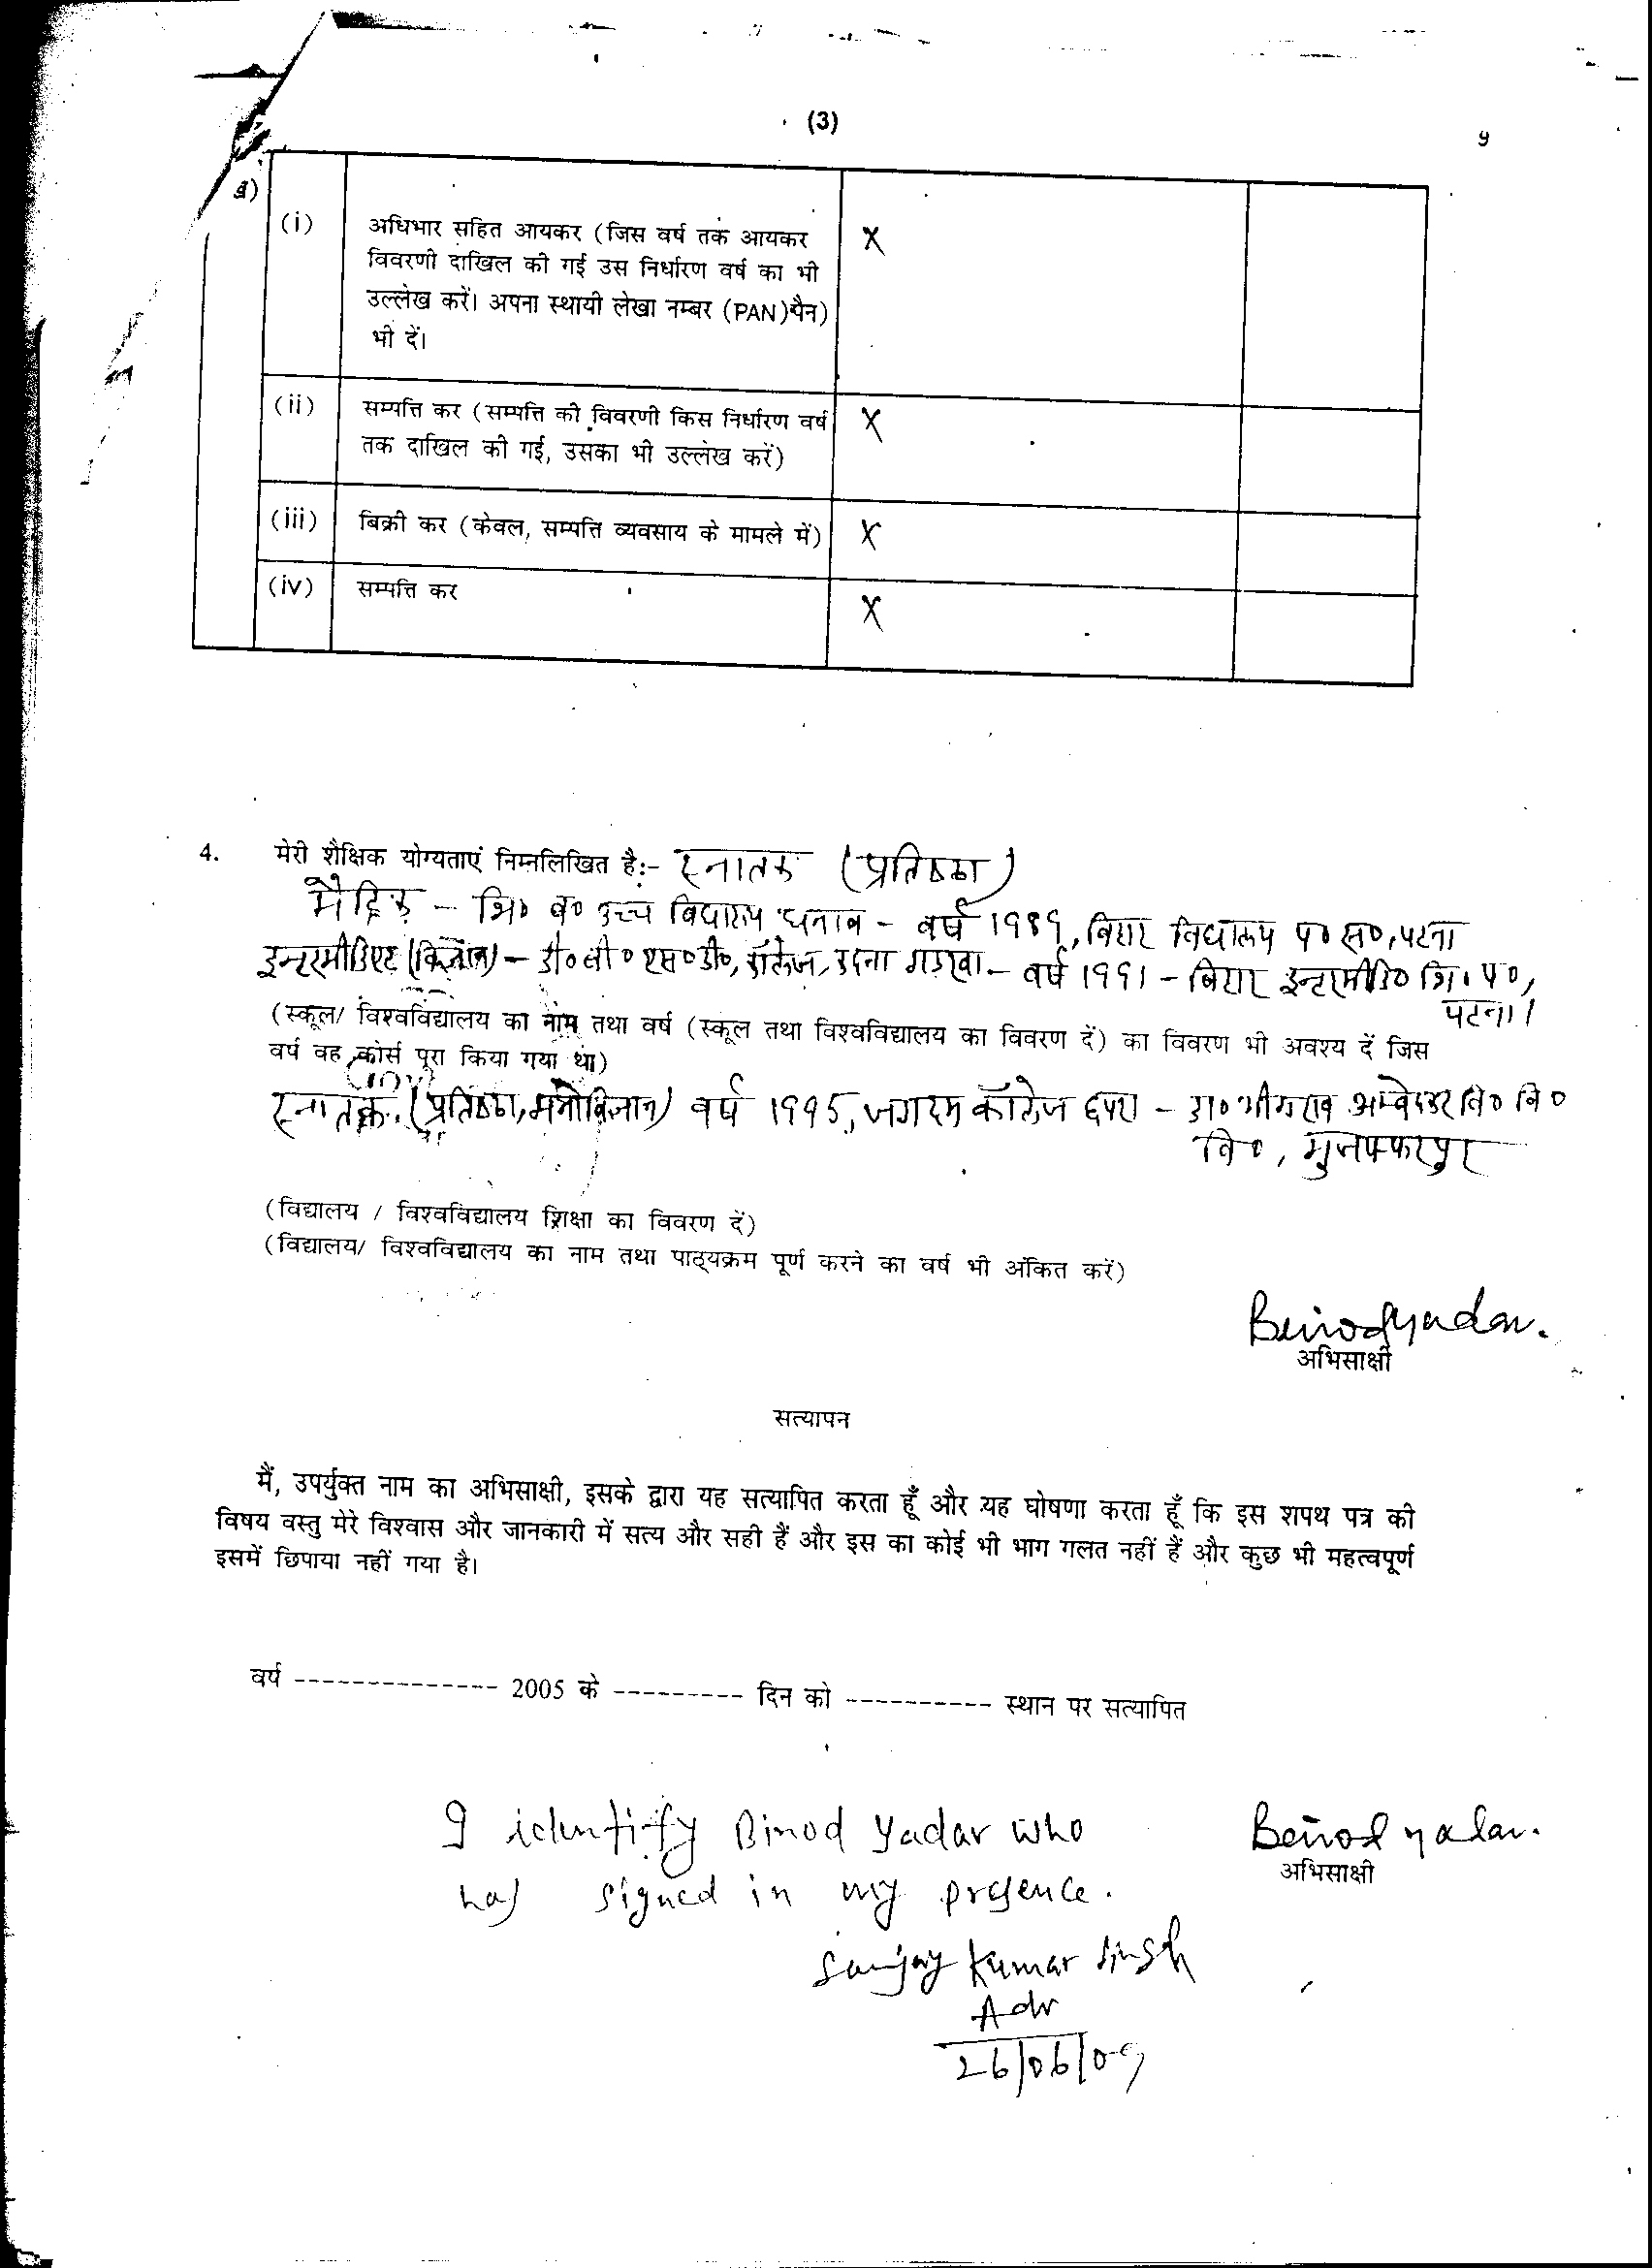 (3)
9
(i) अधिभार सहित आयकर (जिस वर्ष तक आयकर X
विवरणी दाखिल की गई उस निर्धारण वर्ष का भी
उल्लेख करें। अपना स्थायी लेखा नम्बर (PAN)पैन)
भी दें।
(ii) सम्पत्ति कर (सम्पत्ति की विवरणी किस निर्धारण वर्ष X
तक दाखिल की गई, उसका भी उल्लेख करें)
(iii) बिक्री कर (केवल, सम्पत्ति व्यवसाय के मामले में) X
(iv) सम्पत्ति कर X
4. मेरी शैक्षिक योग्यताएं निम्नलिखित है:- स्नातक (प्रतिष्ठा)
मैट्रिक - शि० ब० उच्च विद्यालय धनाव - वर्ष 1989, बिहार विद्यालय प० स०, पटना
इन्टरमीडिएट (विज्ञान) - डी० बी० एस० डी०, कॉलेज, गड़खा - वर्ष 1991 - बिहार इन्टरमीडि० शि० प०,
पटना।
(स्कूल/ विश्वविद्यालय का नाम तथा वर्ष (स्कूल तथा विश्वविद्यालय का विवरण दें) का विवरण भी अवश्य दें जिस
वर्ष वह कोर्स पूरा किया गया था)
स्नातक (प्रतिष्ठा, मनोविज्ञान) वर्ष 1995, जगदम कॉलेज छपरा - डा० भीमराव अम्बेदकर वि० वि०
वि०, मुजफ्फरपुर
(विद्यालय / विश्वविद्यालय शिक्षा का विवरण दें)
(विद्यालय/ विश्वविद्यालय का नाम तथा पाठ्यक्रम पूर्ण करने का वर्ष भी अंकित करें)
Beinod yadav.
अभिसाक्षी
सत्यापन
मैं, उपर्युक्त नाम का अभिसाक्षी, इसके द्वारा यह सत्यापित करता हूँ और यह घोषणा करता हूँ कि इस शपथ पत्र की
विषय वस्तु मेरे विश्वास और जानकारी में सत्य और सही हैं और इस का कोई भी भाग गलत नहीं हैं और कुछ भी महत्वपूर्ण
इसमें छिपाया नहीं गया है।
वर्ष -------------- 2005 के --------- दिन को ---------- स्थान पर सत्यापित
I identify Binod Yadav who
has signed in my presence.
Beinod yadav.
अभिसाक्षी
Sanjay Kumar Singh
Adv
26/06/09